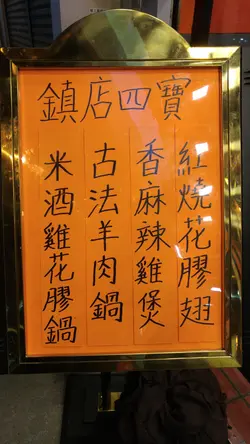 鎮店四寶
紅燒花膠翅
香麻辣雞煲
古法羊肉鍋
米酒雞花膠鍋